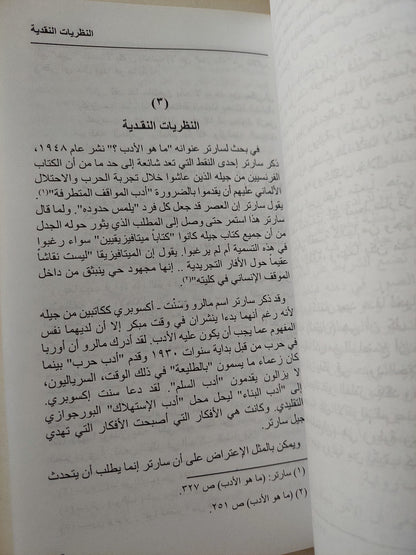 النظريات النقدية
(٣)
النظريات النقدية
في بحث لسارتر عنوانه "ما هو الأدب ؟" نشر عام ١٩٤٨،
ذكر سارتر إحدى النقط التي تعد شائعة إلى حد ما من أن الكتاب
الفرنسيين من جيله الذين عاشوا خلال تجربة الحرب والاحتلال
الألماني عليهم أن يقدموا بالضرورة "أدب المواقف المتطرفة"(١).
يقول سارتر إن العصر قد جعل كل فرد "يلمس حدوده". ولما قال
سارتر هذا استمر حتى وصل إلى المطلب الذي يثور حوله الجدل
من أن جميع كتاب جيله كانوا "كتاباً ميتافيزيقيين" سواء رغبوا
في هذه التسمية أم لم يرغبوا. يقول إن الميتافيزيقا "ليست نقاشاً
عقيماً حول الأفار التجريدية .. إنها مجهود حي ينبثق من داخل
الموقف الإنساني في كليته"(٢).
وقد ذكر سارتر اسم مالرو وسَنْت - أكسوبري ككاتبين من جيله
لأنه رغم أنهما بدءا ينشران في وقت مبكر إلا أن لديهما نفس
المفهوم عما يجب أن يكون عليه الأدب. لقد أدرك مالرو أن أوربا
في حرب من قبل بداية سنوات ١٩٣٠ وقدم "أدب حرب" بينما
كان زعماء ما يسمون "بالطليعة" في ذلك الوقت، السرياليون،
لا يزالون يقدمون "أدب السلم". لقد دعا سنت إكسوبري.
إلى "أدب البناء" ليحل محل "أدب الإستهلاك" البورجوازي
التقليدي. وكانت هي الأفكار التي أصبحت الأفكار التي تهدي
جيل سارتر.
ويمكن بالمثل الإعتراض على أن سارتر إنما يطلب أن يتحدث
(١) سارتر: (ما هو الأدب) ص ٣٢٧.
(٢) (ما هو الأدب) ص ٢٥١.